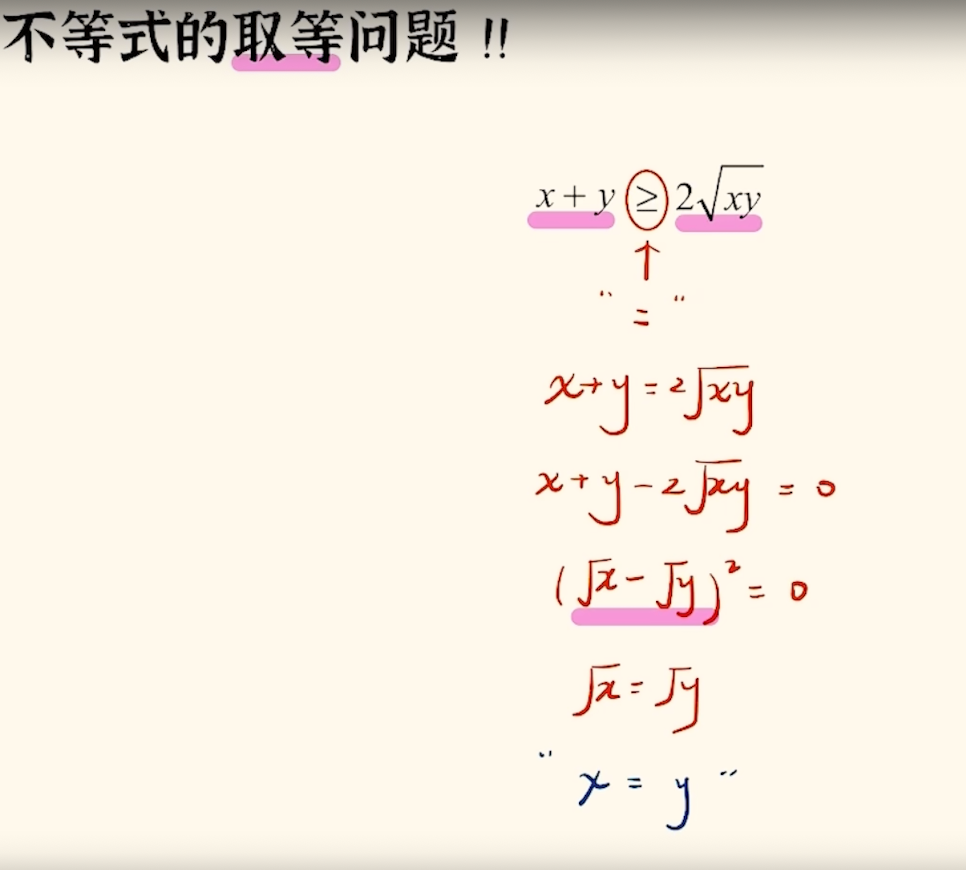 不等式的取等问题!!
x + y ≥ 2√xy
↑
" = "
x+y=2√xy
x+y-2√xy = 0
(√x-√y)² = 0
√x=√y
"x = y"